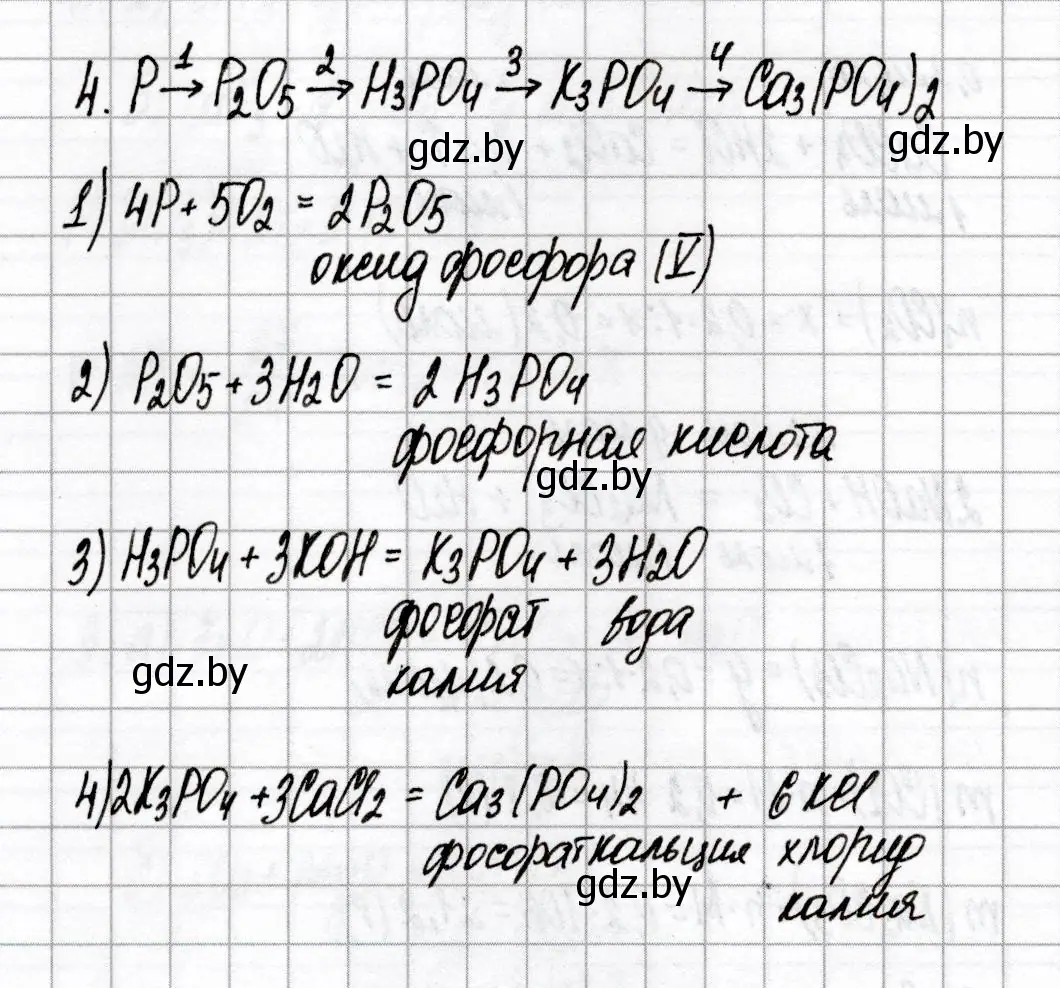 4. P →¹ P₂O₅ →² H₃PO₄ →³ K₃PO₄ →⁴ Ca₃(PO₄)₂
gdz.by
gdz.by
1) 4P + 5O₂ = 2P₂O₅
оксид фосфора (V)
2) P₂O₅ + 3H₂O = 2 H₃PO₄
фосфорная кислота
gdz.by
3) H₃PO₄ + 3KOH = K₃PO₄ + 3H₂O
фосфат вода
gdz.by
калия
4) 2K₃PO₄ + 3CaCl₂ = Ca₃(PO₄)₂ + 6KCl
фосфат кальция хлорид
gdz.by
калия